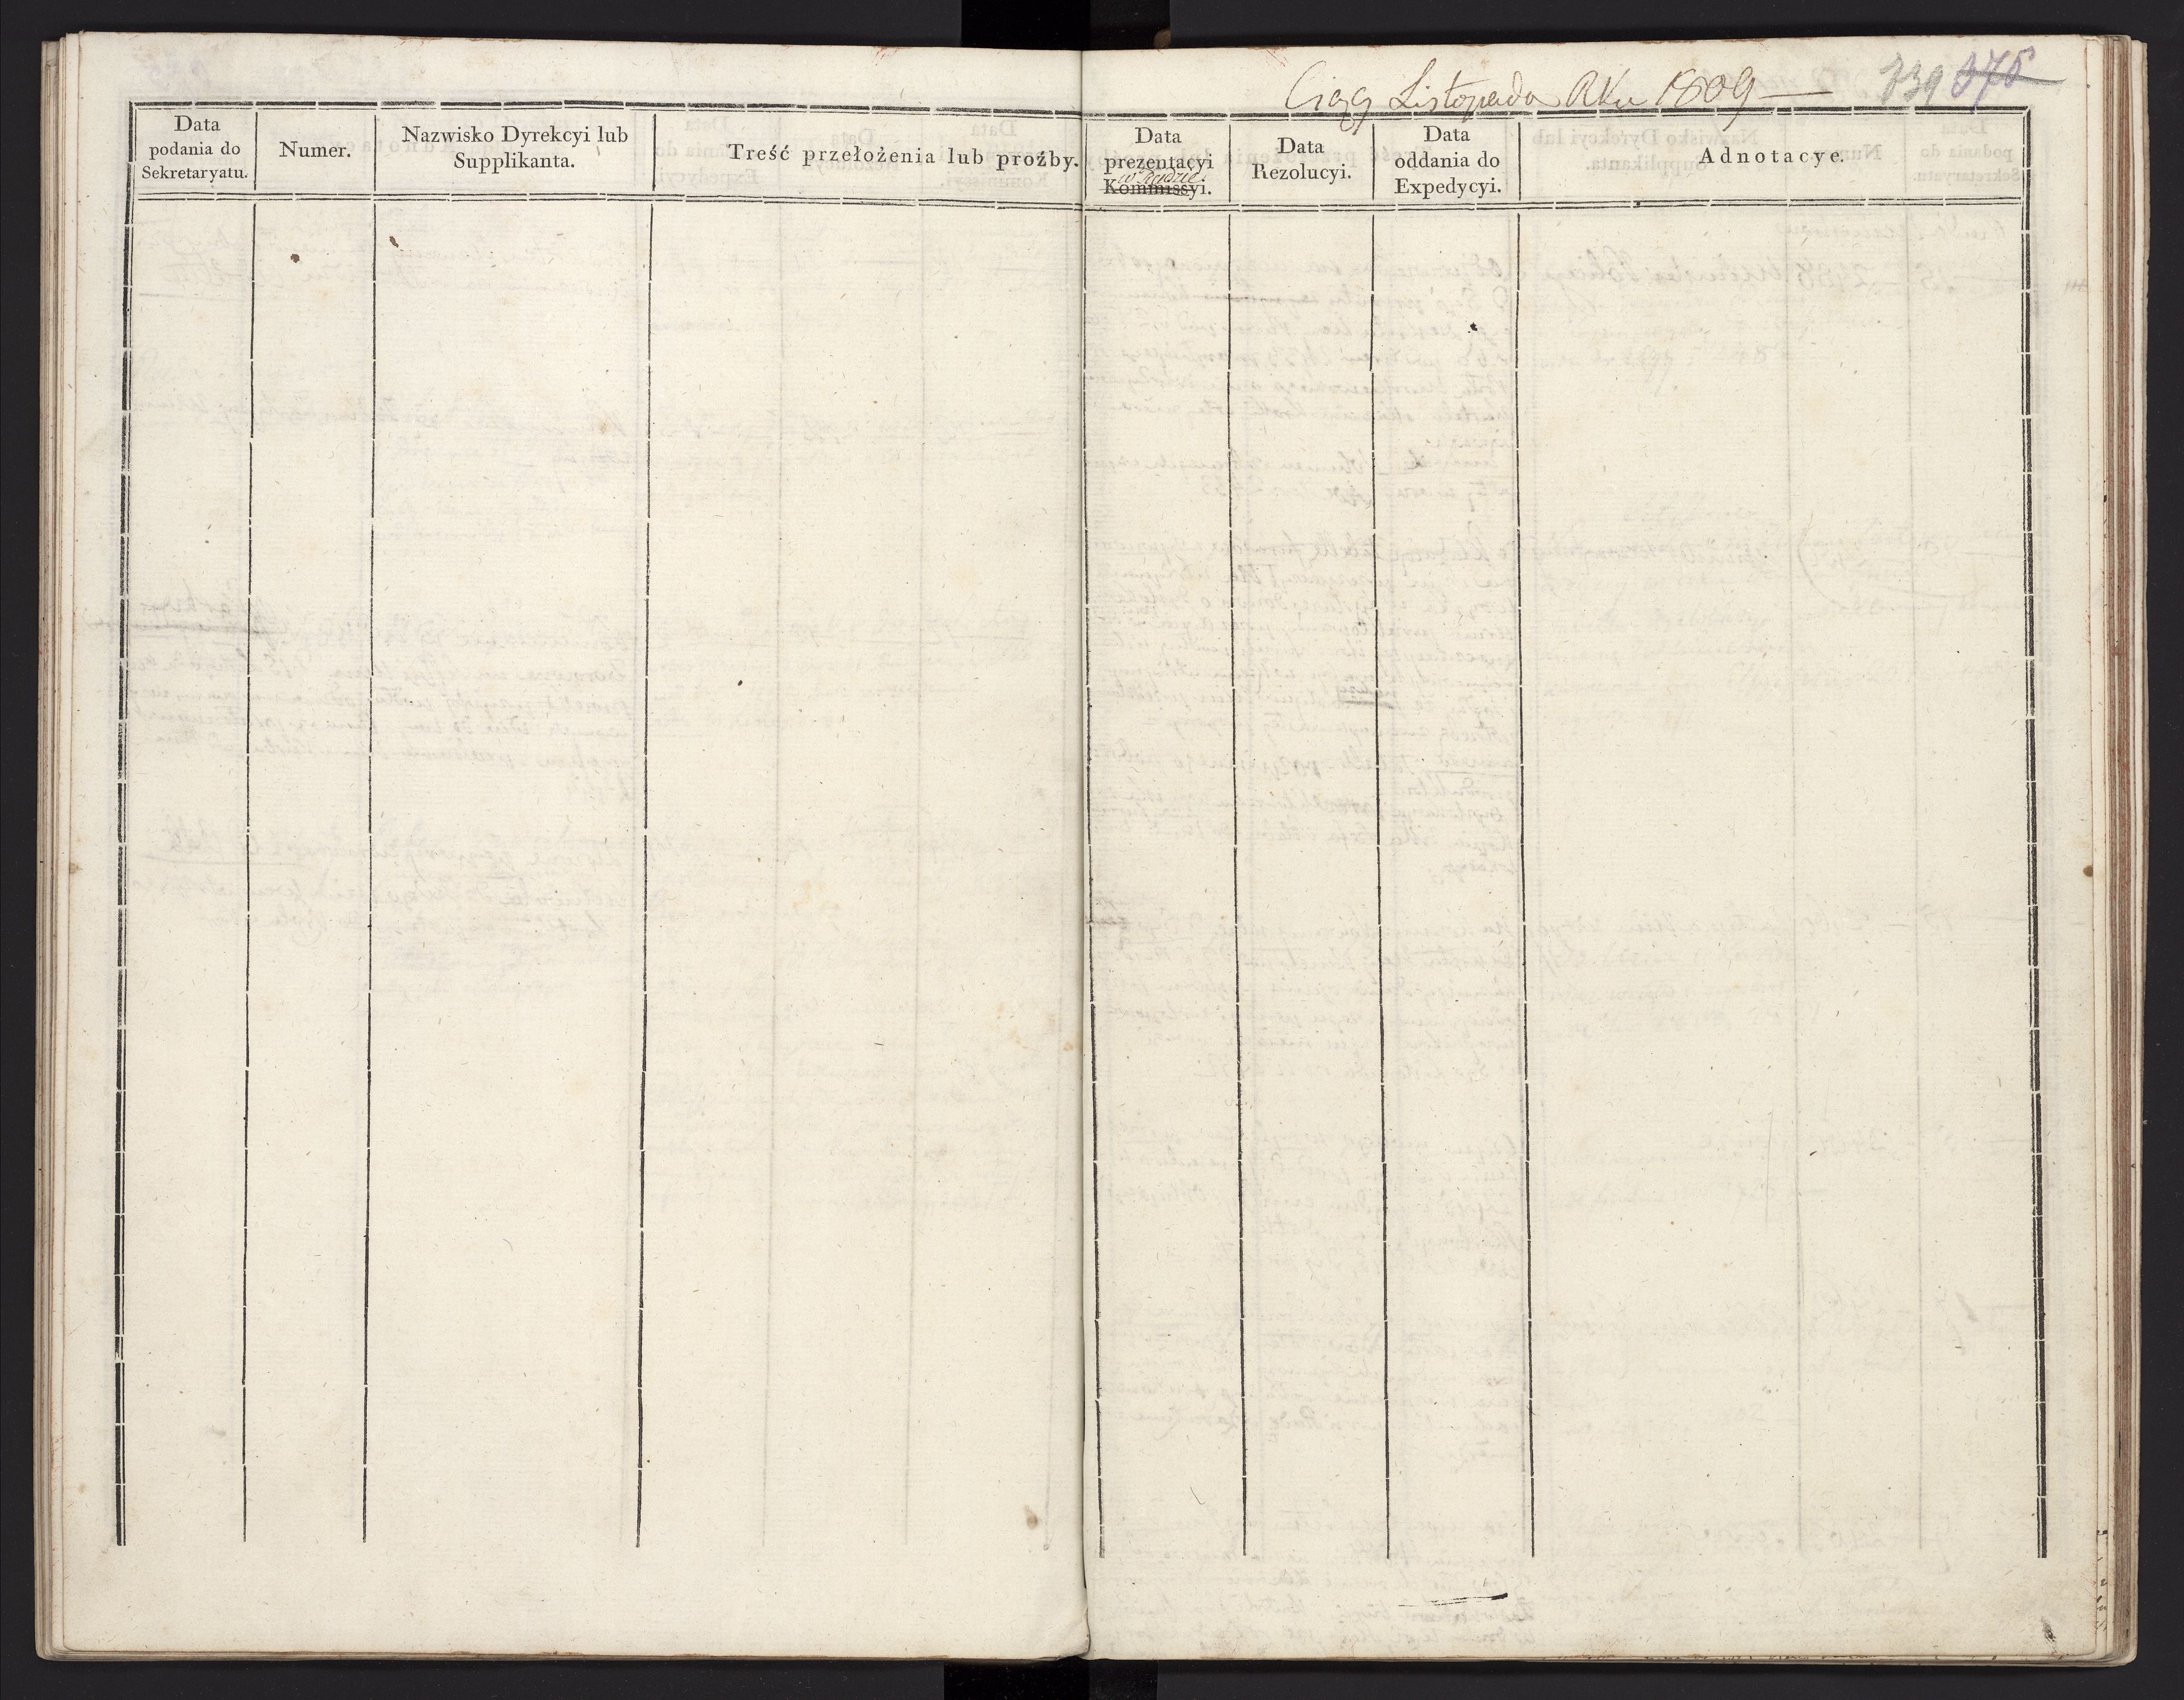 Ciąg Listopada Rku 1809 —
739 375
Data
podania do
Sekretaryatu.
Numer.
Nazwisko Dyrekcyi lub
Supplikanta.
Treść przełożenia lub proźby.
Data
prezentacyi
w Radzie.
Kommissyi.
Data
Rezolucyi.
Data
oddania do
Expedycyi.
Adnotacye.